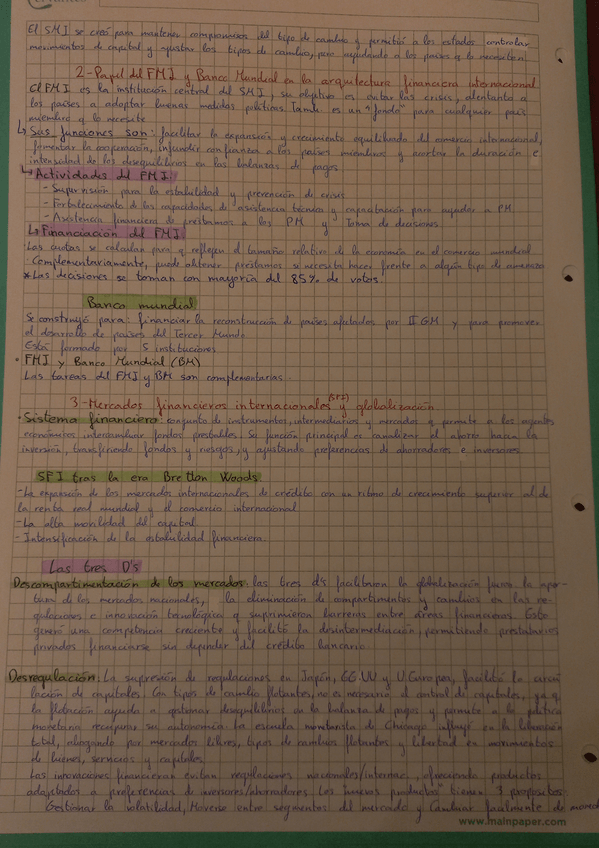 El SMI se creó para mantener compromisos del tipo de cambio y permitió a los estados controlar
movimientos de capital y ajustar los tipos de cambio, pero ayudando a los países q lo necesitan.
2-Papel del FMI y Banco Mundial en la arquitectura financiera internacional
El FMI es la institución central del SMI, su objetivo es evitar las crisis, alentando a
los países a adoptar buenas medidas políticas. Tamb. es un "fondo" para cualquier país
miembro q lo necesite
↳ Sus funciones son: facilitar la expansión y crecimiento equilibrado del comercio internacional,
fomentar la cooperación, infundir confianza a los países miembros y acortar la duración e
intensidad de los desequilibrios en las balanzas de pagos
↳ Actividades del FMI
- Supervisión para la estabilidad y prevención de crisis
- Fortalecimiento de las capacidades de asistencia técnica y capacitación para ayudar a PM
- Asistencia financiera de préstamos a los PM y Toma de decisiones
↳ Financiación del FMI
Las cuotas se calculan para q reflejen el tamaño relativo de la economía en el comercio mundial
Complementariamente, puede obtener préstamos si necesita hacer frente a algún tipo de amenaza
*Las decisiones se toman con mayoría del 85% de votos.
Banco mundial
Se construyó para: financiar la reconstrucción de países afectados por II GM y para promover
el desarrollo de países del Tercer Mundo
Está formado por 5 instituciones
• FMI y Banco Mundial (BM)
Las tareas del FMI y BM son complementarias.
3-Mercados financieros internacionales (SFI) y globalización
·Sistema financiero: conjunto de instrumentos, intermediarios y mercados q permite a los agentes
económicos intercambiar fondos prestables. Su función principal es canalizar el ahorro hacia la
inversión, transfiriendo fondos y riesgos, y ajustando preferencias de ahorradores e inversores.
SFI tras la era Bretton Woods
-La expansión de los mercados internacionales de crédito con un ritmo de crecimiento superior al de
la renta real mundial y el comercio internacional
-La alta movilidad del capital
-Intensificación de la estabilidad financiera.
Las tres D's
Descompartimentación de los mercados: las tres d's facilitaron la globalización financ. la aper-
tura de los mercados nacionales, la eliminación de compartimentos y cambios en las re-
gulaciones e innovación tecnológica q suprimieron barreras entre áreas financieras. Esto
generó una competencia creciente y facilitó la desintermediación, permitiendo prestatarios
privados financiarse sin depender del crédito bancario.
Desregulación: La supresión de regulaciones en Japón, EE.UU y U. Europea, facilitó la circu
lación de capitales. Con tipos de cambio flotantes, no es necesario el control de capitales, ya q
la flotación ayuda a gestionar desequilibrios en la balanza de pagos y permite a la política
monetaria recuperar su autonomía. La escuela monetarista de Chicago influyó en la liberación
total, abogando por mercados libres, tipos de cambios flotantes y libertad en movimientos
de bienes, servicios y capitales
Las innovaciones financieras evitan regulaciones nacionales/internac., ofreciendo productos
adaptados a preferencias de inversores/ahorradores. Los "nuevos productos" tienen 3 propósitos
Gestionar la volatilidad, Moverse entre segmentos del mercado y Cambiar fácilmente de
www.mainpaper.com